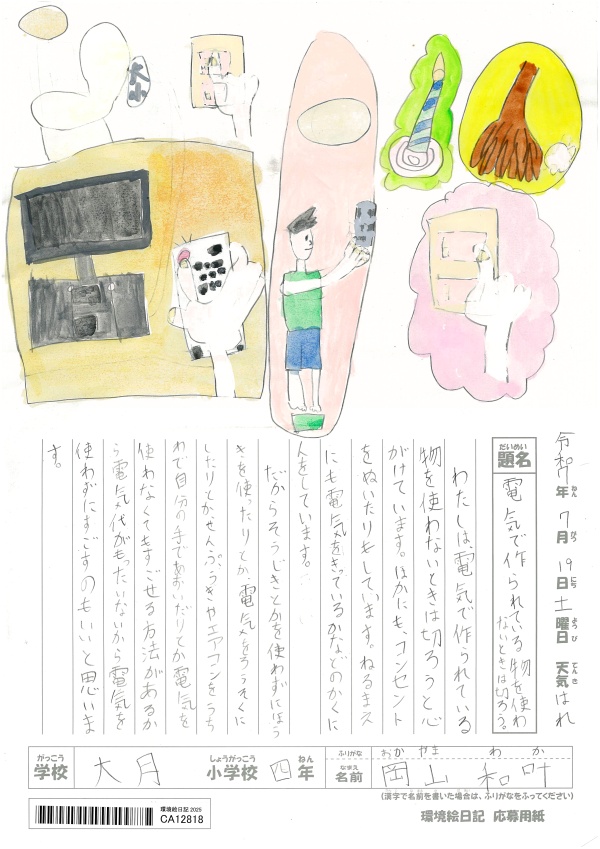 大
小
令和7年 7月 19日 土曜日 天気 はれ
ねん がつ にち ようび てんき
だいめい
題名
電気で作られている物を使わ
ないときは切ろう。
わたしは、電気で作られている
物を使わないときは切ろうと心
がけています。ほかにも、コンセント
をぬいたりもしています。ねるまえ
にも電気をきっているかなどのかくに
んをしています。
だからそうじきとかを使わずにほう
きを使ったりとか、電気をろうそくに
したりとか、せんぷうきやエアコンをうち
わで自分の手であおいだりとか電気を
使わなくてもすごせる方法があるか
ら電気代がもったいないから電気を
使わずにすごすのもいいと思いま
す。
がっこう
学校
大月
しょうがっこう
小学校
四
ねん
年
ふりがな
おか やま わ か
なまえ
名前
岡山 和叶
(漢字で名前を書いた場合は、ふりがなをふってください)
環境絵日記 2025
CA12818
環境絵日記 応募用紙